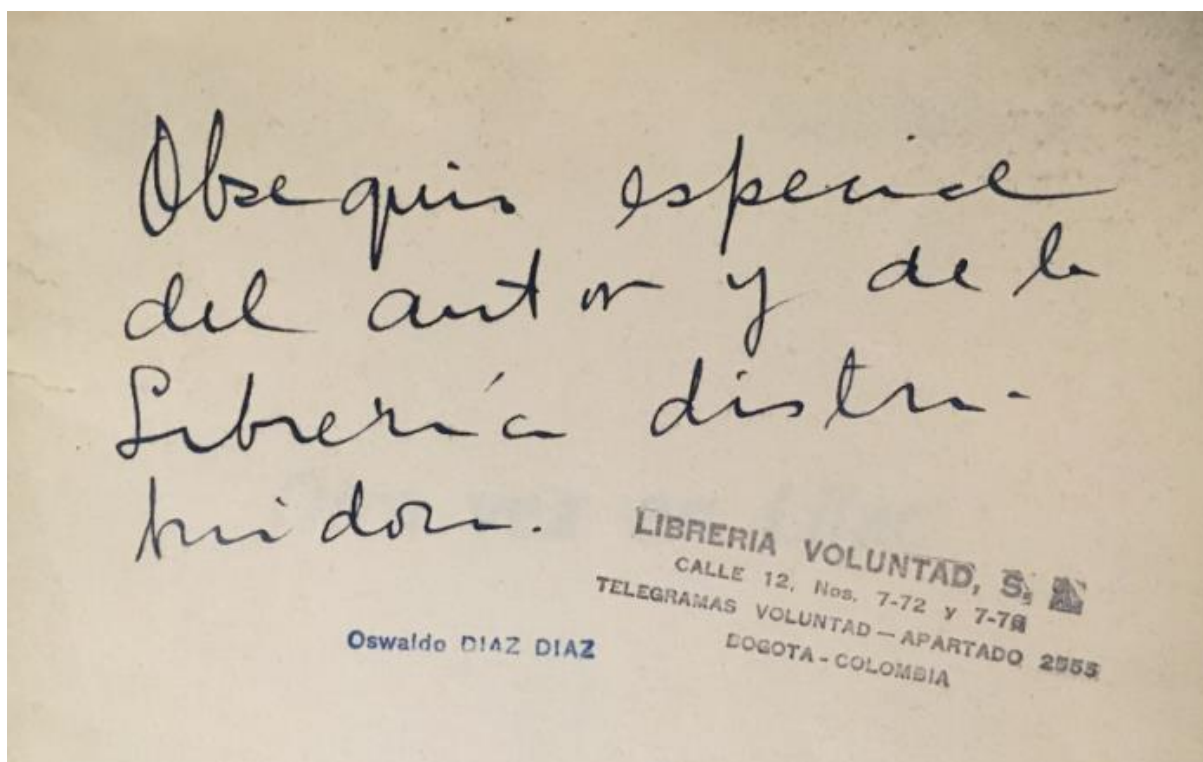 Obsequio especial
del autor y de la
Librería distri-
buidora.
LIBRERIA VOLUNTAD, S.
CALLE 12, Nos. 7-72 y 7-78
TELEGRAMAS VOLUNTAD - APARTADO 2555
BOGOTA - COLOMBIA
Oswaldo DIAZ DIAZ